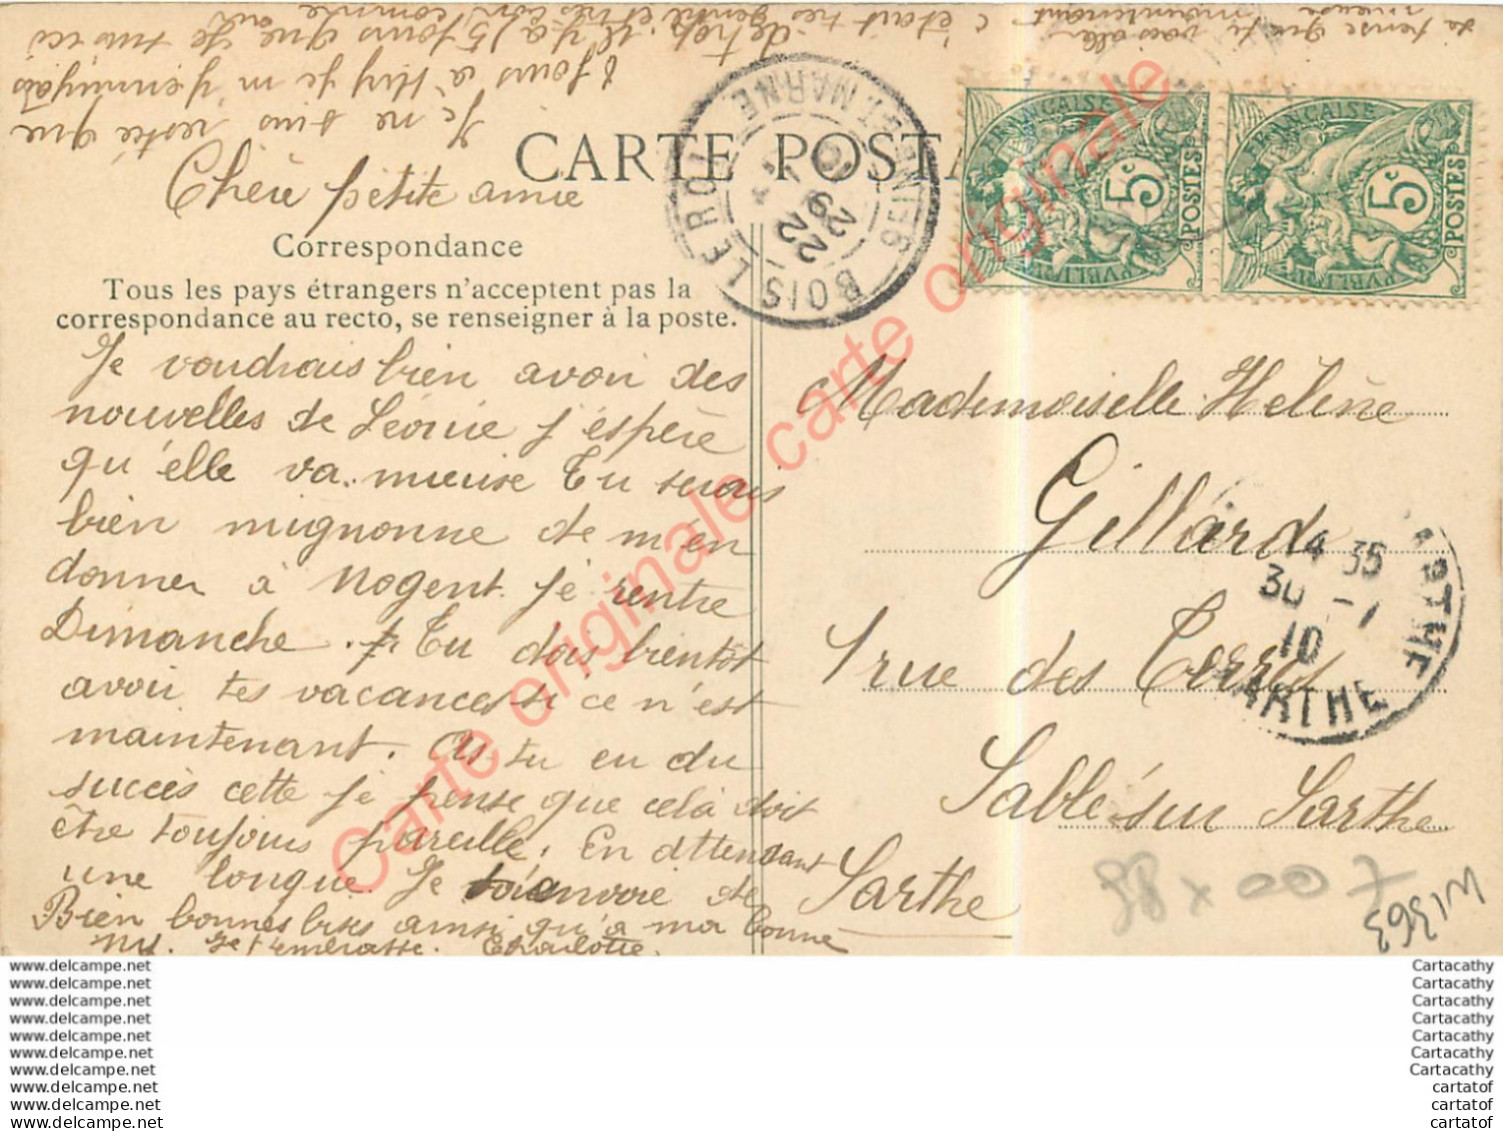 Je ne suis restée que
8 jours à Héry je m'ennuyais
de trop. il y a 15 jours que je suis ici
c'était très gentil et très bon comme air
Je pense que tu vas aller
mieuse maintenant
CARTE POSTA
Chère petite amie
Correspondance
Tous les pays étrangers n'acceptent pas la
correspondance au recto, se renseigner à la poste.
Je voudrais bien avoir des
nouvelles de Léonie j'espère
qu'elle va mieuse Tu serais
bien mignonne de m'en
donner à Nogent. Je rentre
Dimanche. Tu dois bientôt
avoir tes vacances si ce n'est
maintenant. As-tu eu du
succès cette je pense que celà doit
être toujours pareille. En attendant
une longue. Je t'envoie de
Bien bonnes bises ainsi qu'à ma bonne
Je t'embrasse. Charlotte
BOIS LE ROI
SEINE ET MARNE
22
29
10
FRANÇAISE
5c
POSTES
RÉPUBLIQUE
FRANÇAISE
5c
POSTES
RÉPUBLIQUE
Mademoiselle Hélène
Gillard
1 rue des Terres
Sablé-sur Sarthe
Sarthe
14 35
30 -1
10
SARTHE
58 x 00 7
W1363
Carte originale carte originale
www.delcampe.net
www.delcampe.net
www.delcampe.net
www.delcampe.net
www.delcampe.net
www.delcampe.net
www.delcampe.net
www.delcampe.net
www.delcampe.net
www.delcampe.net
Cartacathy
Cartacathy
Cartacathy
Cartacathy
Cartacathy
Cartacathy
Cartacathy
cartatof
cartatof
cartatof